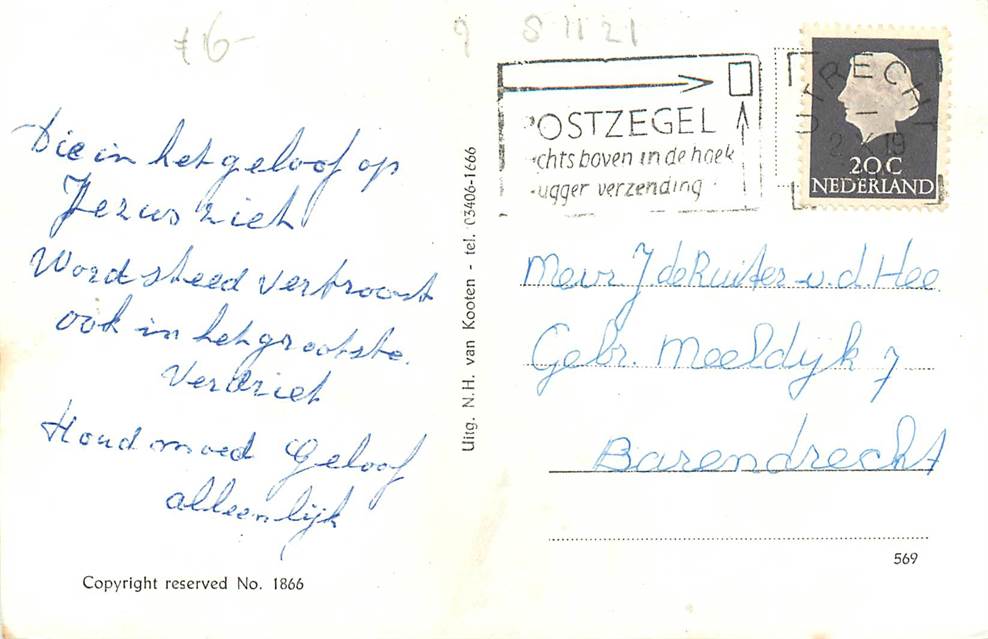 76-
9 S 11 21
POSTZEGEL
chts boven in de hoek
ugger verzending
UTRECHT
20 C
NEDERLAND
Die in het geloof op
Jezus ziet
Word steed vertroost
ook in het grootste.
Verdriet
Houd moed Geloof
alleenlijk
Copyright reserved No. 1866
Uitg. N.H. van Kooten - tel. 03406-1666
Mevr J de Ruiter-v.d. Hee
Gebr. Meeldijk 7
Barendrecht
569